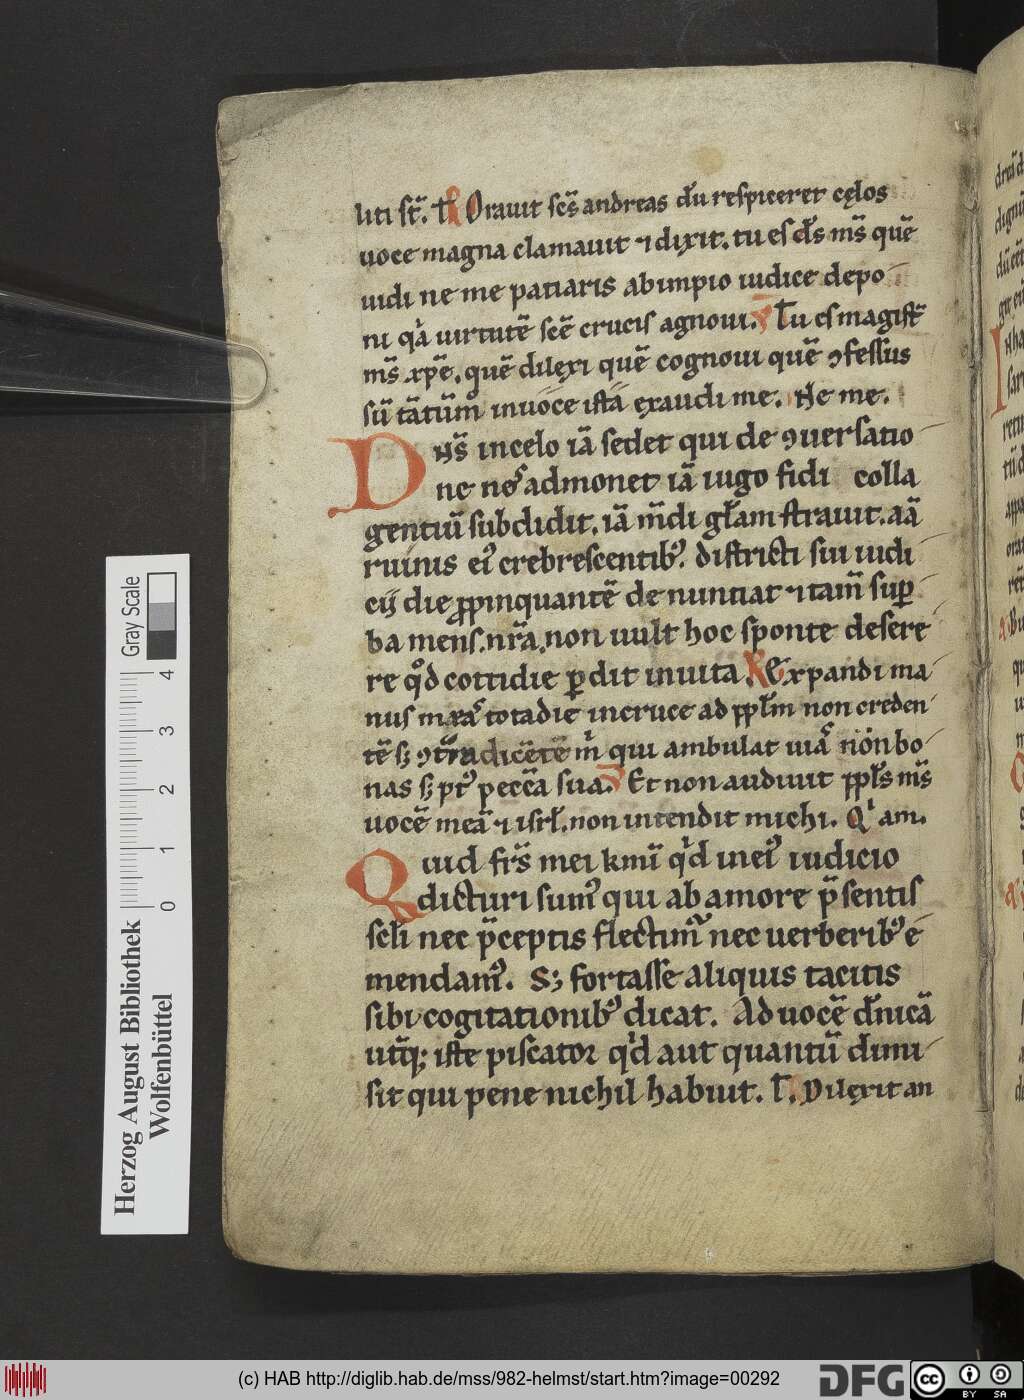 liti st̄. T̄ R Orauit sc̄s andreas dū respiceret cęlos
uoce magna clamauit ⁊ dixit. tu es dˢ ms̄ quē
uidi ne me patiaris ab impio iudice depo-
ni qͣ uirtutē scē crucis agnoui. V Tu es magist̄
ms̄ xpē. quē dilexi quē cognoui quē ꝯfessus
sū tātūm in uoce istā ęxaudi me. Ne me.
DNS̄ in celo iā sedet qui de ꝯuersatio-
ne neˢ admonet iā iugo fidi colla
gentiū subdidit. iā m̄di gl̄am strauit. aā
ruinis eiꝰ crebrescentibꝰ. districti sui iudi-
cij die ꝓpinquantē de nuntiat ⁊ tam̄ suꝑ-
ba mens nr̄a. non uult hoc sponte desere-
re qͦd cottidie ꝑdit inuita. R Expandi ma-
nus meas tota die in cruce ad ppl̄m non creden-
tē sꝫ ꝯtradicētē m̄ qui ambulat uiā nōn bo-
nas sꝫ ptꝰ peccā sua. V Et non audiuit ppl̄s ms̄
uocē meā ⁊ isrl̄. non intendit michi. Qⁱ am.
Quid fr̄s mei kmī qͥd in eiꝰ iudicio
dicturi sumꝰ qui ab amore p̄sentis
scl̄i nec p̄ceptis flectimꝰ nec uerberibꝰ e-
mendamꝰ. Sꝫ fortasse aliquis tacitis
sibi cogitationibꝰ dicat. Ad uocē dn̄icā
ut̄qꝫ iste piscator qͥd aut quantū dimi-
sit qui pene nichil habuit. T̄. R Dilexit an
Herzog August Bibliothek
Wolfenbüttel
0 1 2 3 4
Gray Scale
(c) HAB http://diglib.hab.de/mss/982-helmst/start.htm?image=00292
DFG
cc BY SA